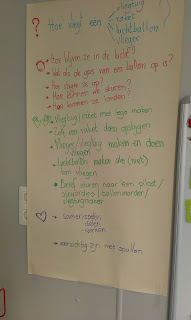 ? Hoe vliegt een
vliegtuig
raket
luchtballon
vlieger
Hoe blijven ze in de lucht?
Wat als de gas van een ballon op is?
Hoe sturen ze op?
Hoe kunnen we sturen?
Hoe kunnen ze landen?
Vliegtuig/raket met lego maken
Zelf een raket laten opstijgen
Vlieger/vliegtuig maken en doen vliegen
Luchtballon maken die (niet) kan vliegen
Brief sturen naar een piloot/
/ballonvaarder/
vliegtuigmaker
Samen spelen
delen
werken
voorzichtig zijn met spullen